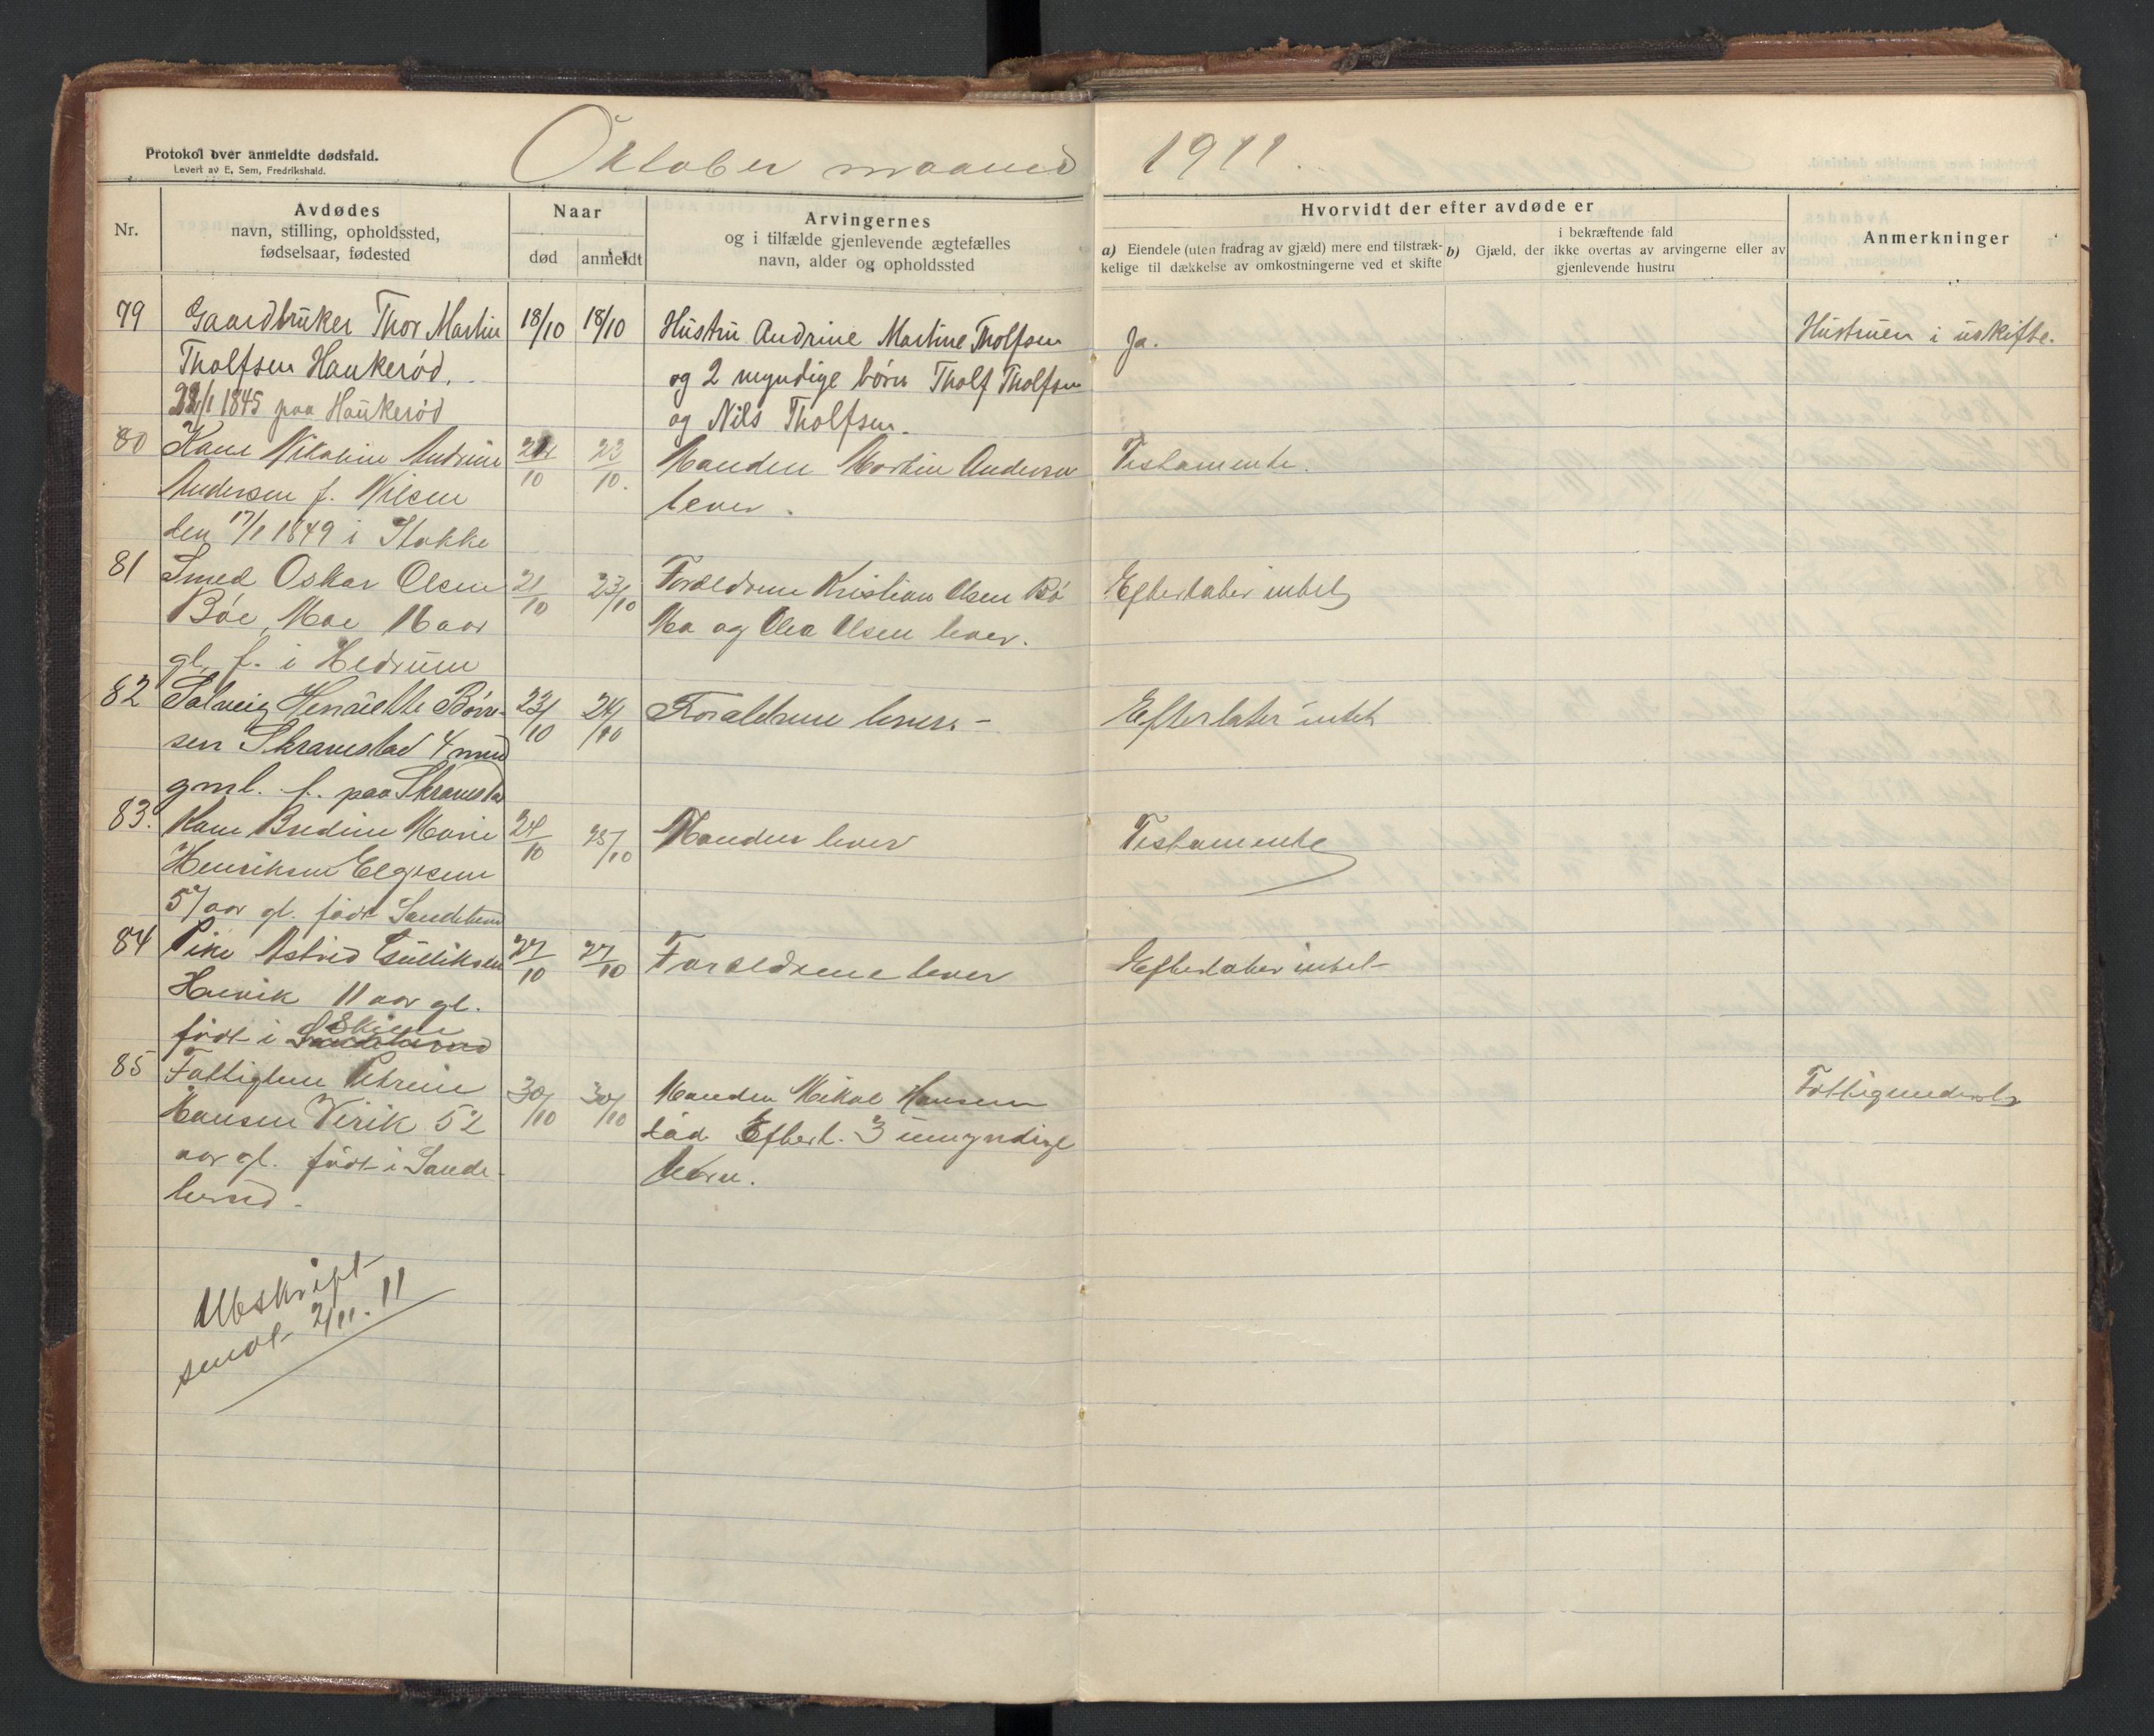 Protokol over anmeldte dødsfald.
Levert av E. Sem, Fredrikshald.
Oktober maaned 1911.
Nr.
Avdødes
navn, stilling, opholdssted,
fødselsaar, fødested
Naar
død anmeldt
Arvingernes
og i tilfælde gjenlevende ægtefælles
navn, alder og opholdssted
Hvorvidt der efter avdøde er
a) Eiendele (uten fradrag av gjæld) mere end tilstræk-
kelige til dækkelse av omkostningerne ved et skifte
b) Gjæld, der
i bekræftende fald
ikke overtas av arvingerne eller av
gjenlevende hustru
Anmerkninger
79 Gaardbruker Thor Martin 18/10 18/10 Hustru Andrine Martine Tholfsen Ja. Hustruen i uskifte.
Tholfsen Haukerød. og 2 myndige børn Tholf Tholfsen
1845 paa Haukerød og Nils Tholfsen.
80 Kone Nikoline Andrine 23/10. Manden Martin Andersen Testamente.
Andersen f. Nilsen lever.
den 17/1 1849 i Stokke
81 Smed Oskar Olsen 21/10 23/10 Forældrene Kristian Olsen Bø Efterlater intet
Bøe, Moe aar Mo og Olea Olsen lever.
gl. f. i Hedrum
82 Solveig Henriette Børre- 23/10 24/10 Forældrene lever. - Efterlater intet
sen Skravestad 4 mnd
gml. f. paa Skravestad
83. Kone Bredine Marie 24/10 25/10 Manden lever Testamente
Henriksen Elgesem
57 aar gl. født Sandeherred
84 Pike Astrid Gulliksen 27/10 27/10 Forældrene lever Efterlater intet
Haavik 11 aar gl.
født i Skien
Sandeherred
85 Fattiglem Petrine 30/10 30/10 Manden Mikal Hansen Fattigunderst
Hansen Virik 52 død Efterl. 3 umyndige
aar gl. født i Sande- børn.
herred.
Utskrift
sendt 2/11. 11